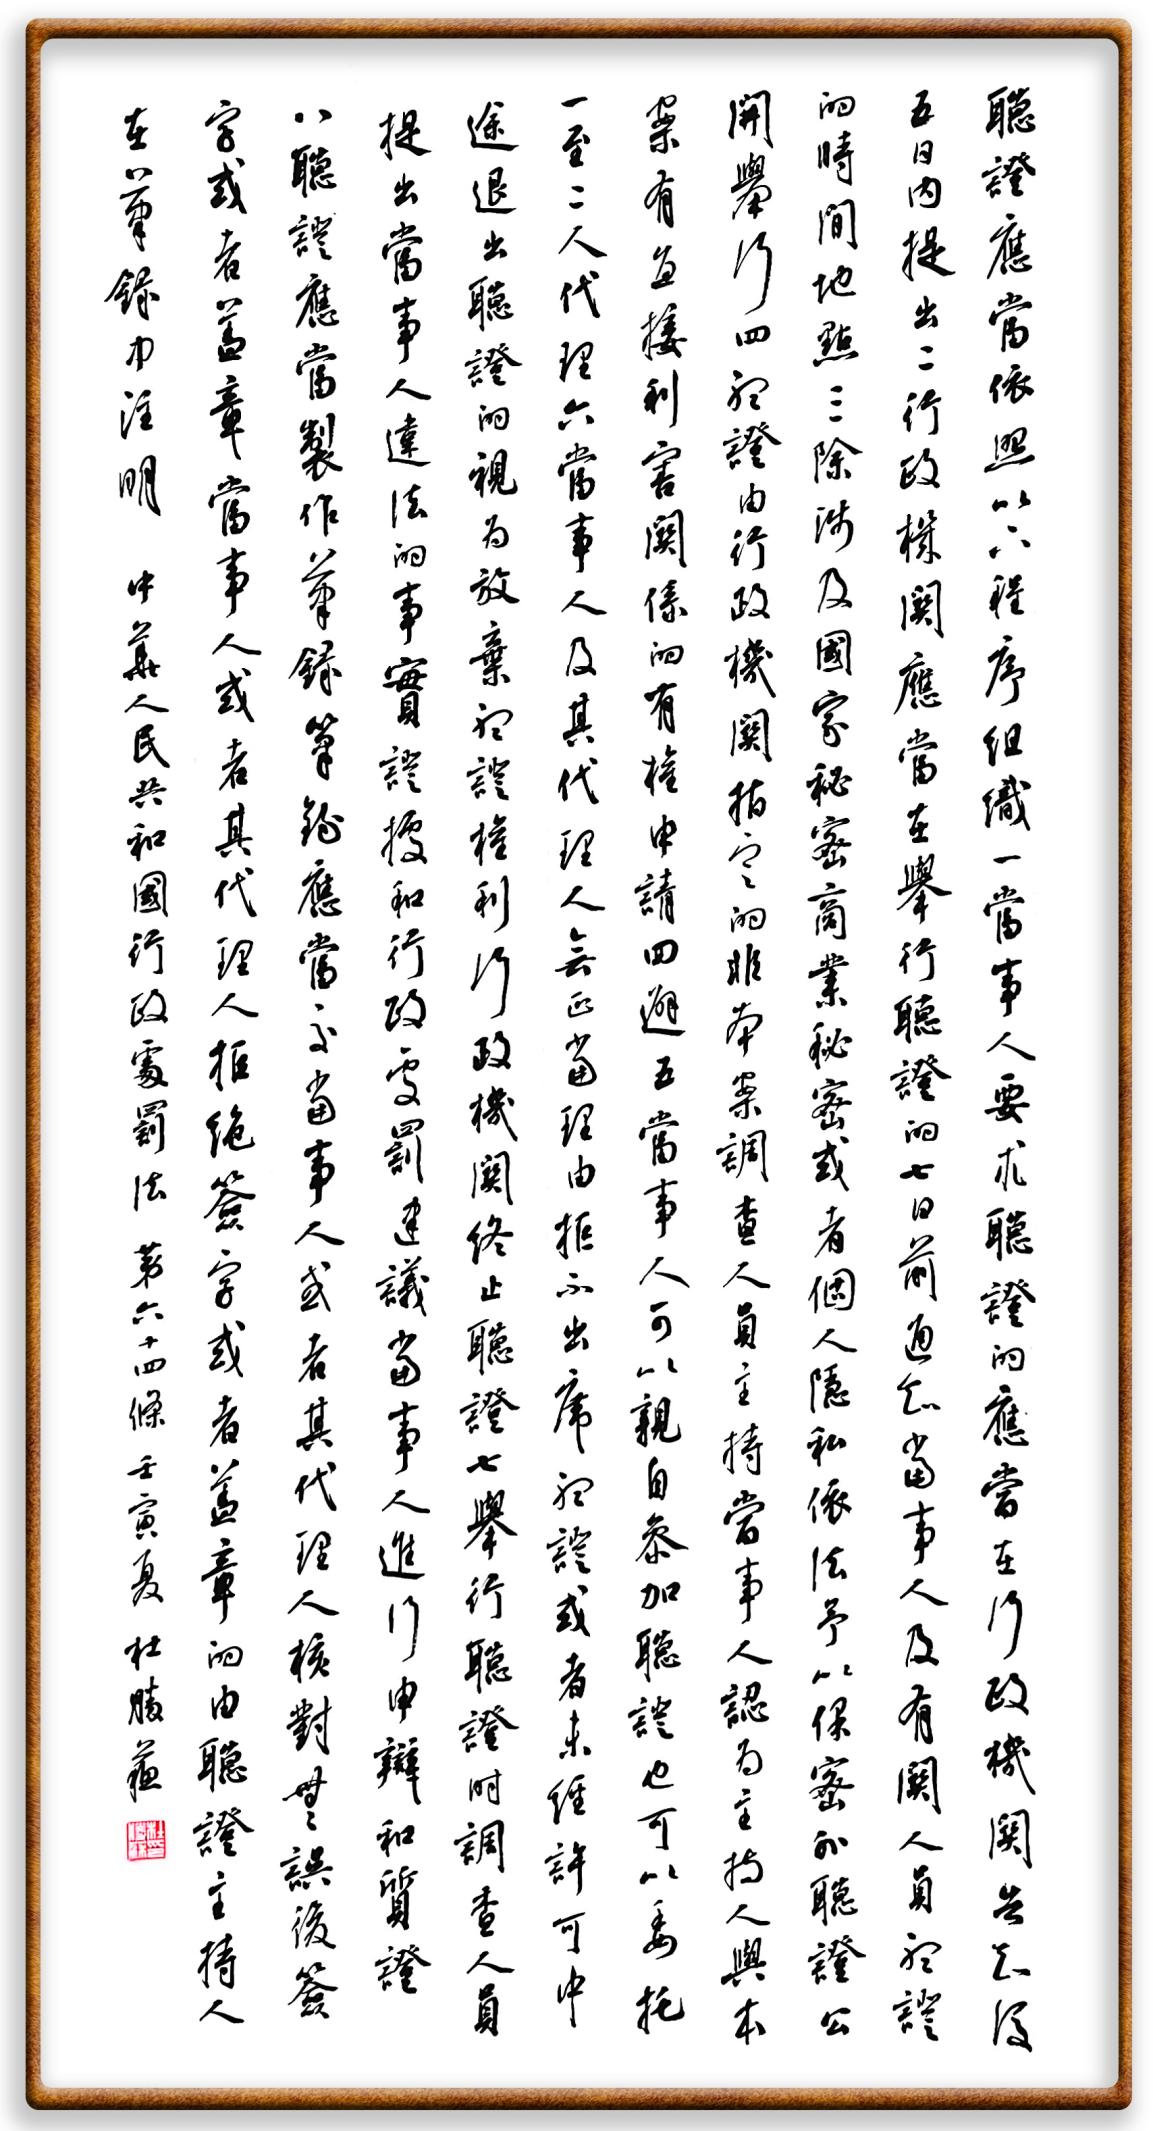 聽證應當依照以下程序組織一當事人要求聽證的應當在行政機關告知後
五日內提出二行政機關應當在舉行聽證的七日前通知當事人及有關人員聽證
的時間地點三除涉及國家秘密商業秘密或者個人隱私依法予以保密外聽證公
開舉行四聽證由行政機關指定的非本案調查人員主持當事人認為主持人與本
案有直接利害關係的有權申請回避五當事人可以親自參加聽證也可以委托
一至二人代理六當事人及其代理人無正當理由拒不出席聽證或者未經許可中
途退出聽證的視為放棄聽證權利行政機關終止聽證七舉行聽證時調查人員
提出當事人違法的事實證據和行政處罰建議當事人進行申辯和質證
八聽證應當製作筆錄筆錄應當交當事人或者其代理人核對無誤後簽
字或者蓋章當事人或者其代理人拒絕簽字或者蓋章的由聽證主持人
在筆錄中注明 中華人民共和國行政處罰法 第六十四條 壬寅夏 杜勝蓀